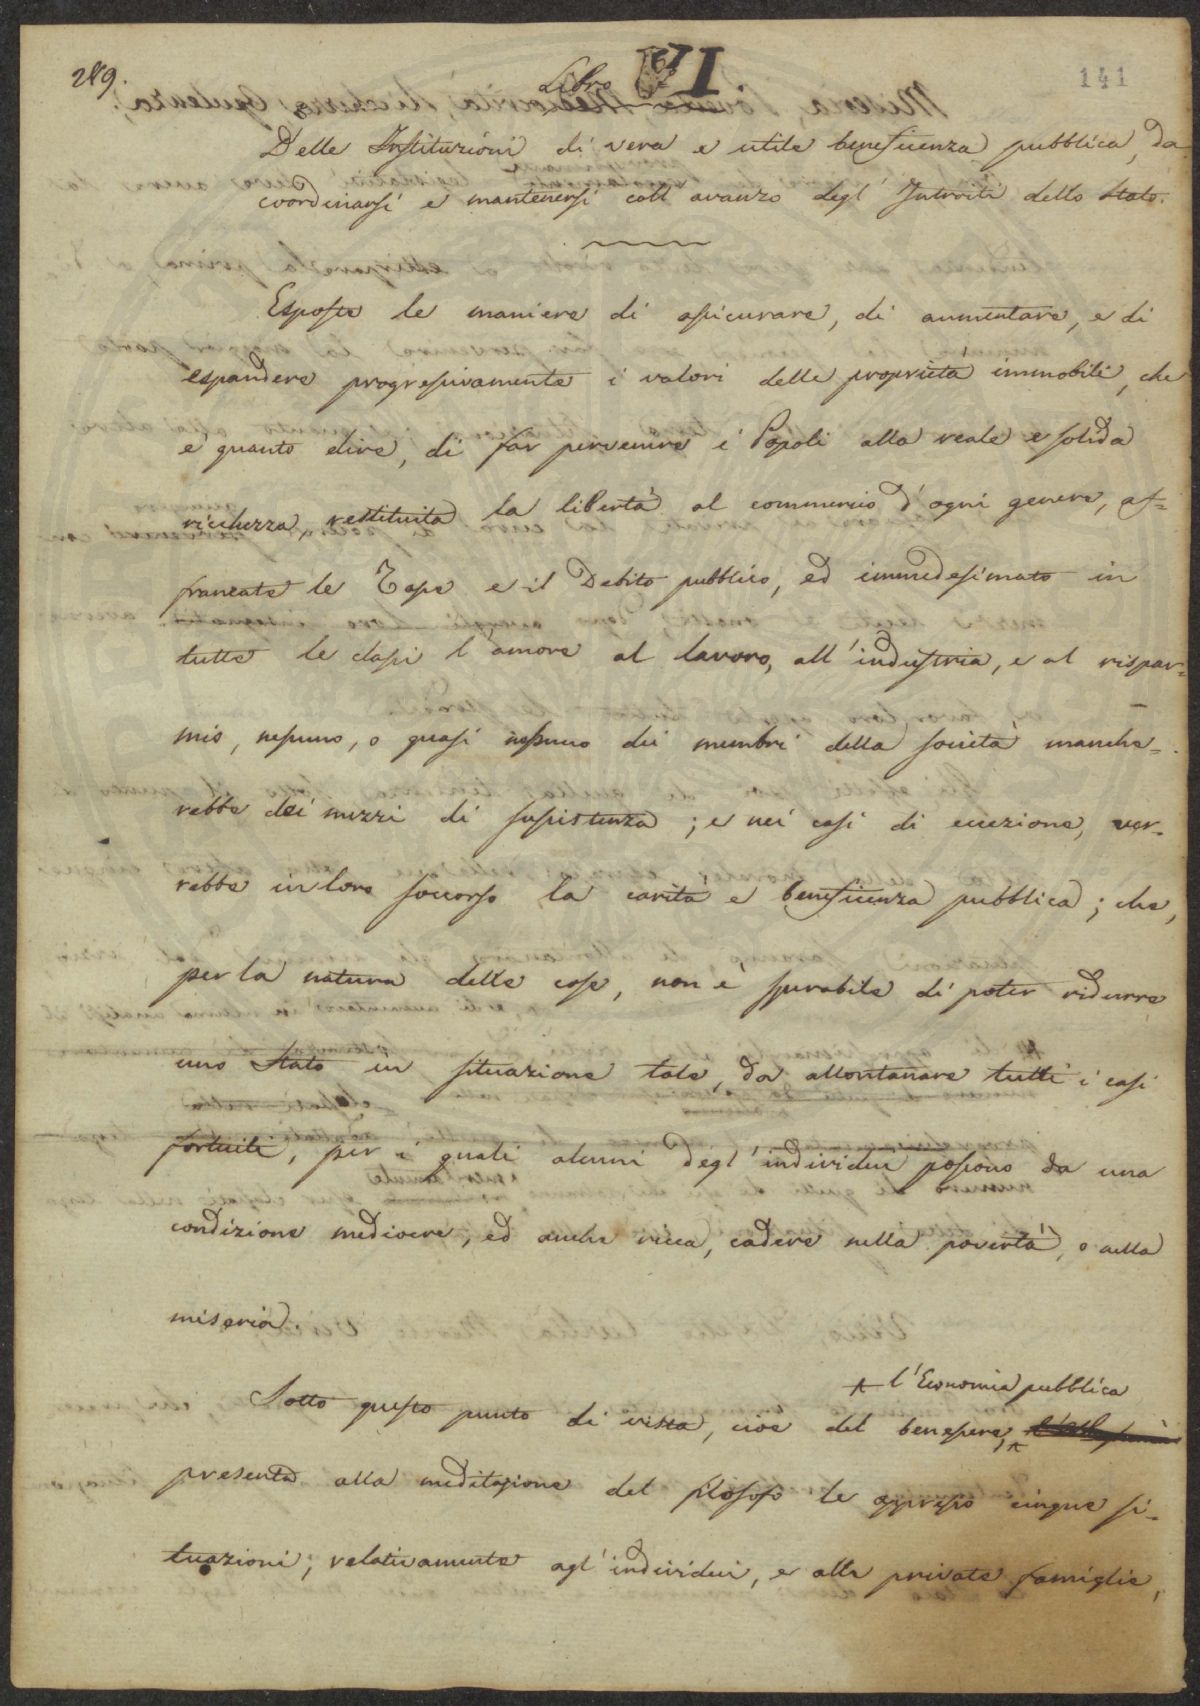 289.
141
Libro VI
Delle Instituzioni di vera e utile beneficenza pubblica, da
coordinarsi e mantenersi coll'avanzo degl'Introiti dello Stato.
Esposte le maniere di assicurare, di aumentare, e di
espandere progressivamente i valori delle proprietà immobili, che
è quanto dire, di far pervenire i Popoli alla reale e solida
ricchezza, restituita la libertà al commercio d'ogni genere, af=
francate le Tasse e il Debito pubblico, ed immedesimato in
tutte le classi l'amore al lavoro, all'industria, e al rispar=
mio, nessuno, o quasi nessuno dei membri della società manche=
rebbe dei mezzi di sussistenza; e nei casi di eccezione, ver=
rebbe in loro soccorso la carità e beneficenza pubblica; che,
per la natura delle cose, non è sperabile di poter ridurre
uno Stato in situazione tale, da allontanare tutti i casi
fortuiti, per i quali alcuni degl'individui possono da una
condizione mediocre, ed anche ricca, cadere nella povertà, o nella
miseria.
l'Economia pubblica
Sotto questo punto di vista, cioè del benessere,
presenta alla meditazione del filosofo le appresso cinque si=
tuazioni; relativamente agl'individui, e alle private famiglie,